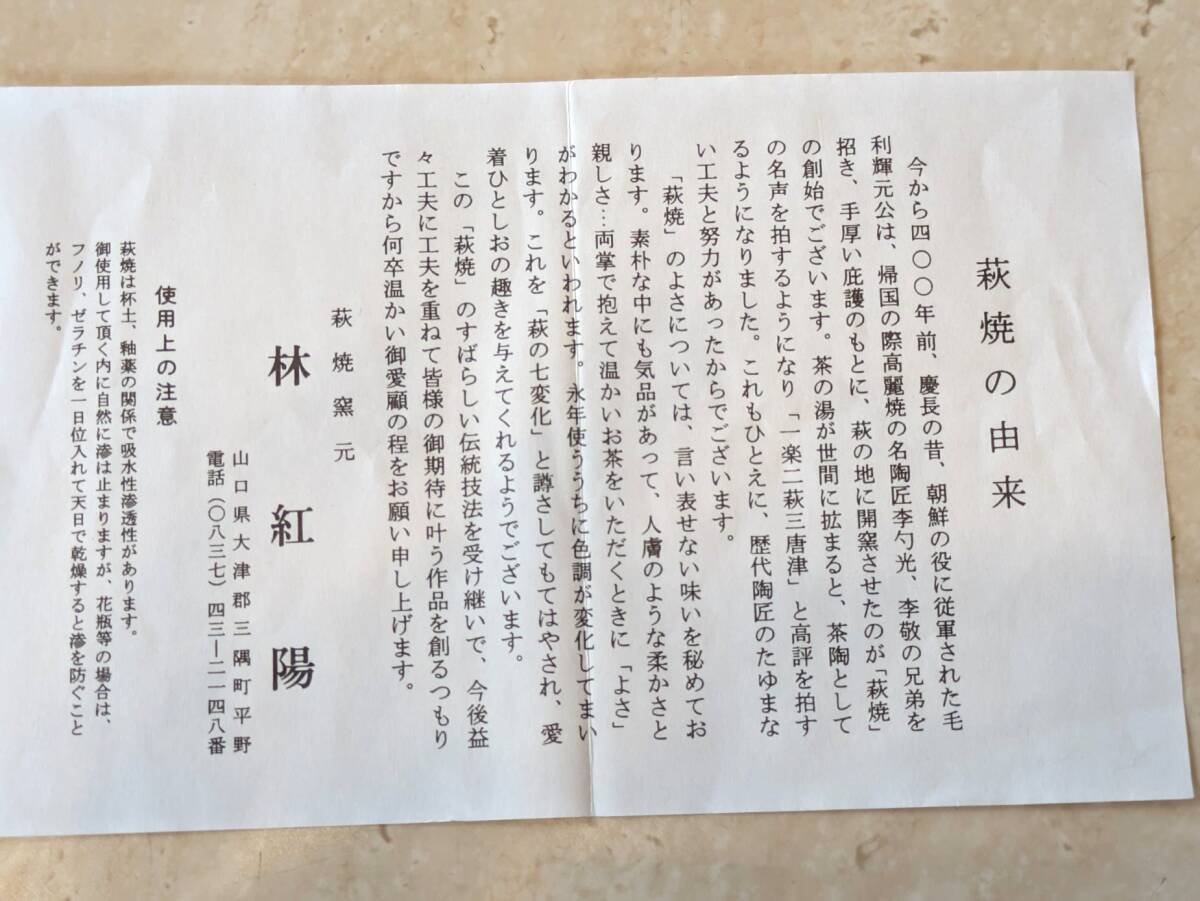 萩焼の由来
今から四〇〇年前、慶長の昔、朝鮮の役に従軍された毛
利輝元公は、帰国の際高麗焼の名陶匠李勺光、李敬の兄弟を
招き、手厚い庇護のもとに、萩の地に開窯させたのが「萩焼」
の創始でございます。茶の湯が世間に拡まると、茶陶として
の名声を拍するようになり「一楽二萩三唐津」と高評を拍す
るようになりました。これもひとえに、歴代陶匠のたゆまな
い工夫と努力があったからでございます。
「萩焼」のよさについては、言い表せない味いを秘めてお
ります。素朴な中にも気品があって、人膚のような柔かさと
親しさ…両掌で抱えて温かいお茶をいただくときに「よさ」
がわかるといわれます。永年使ううちに色調が変化してまい
ります。これを「萩の七変化」と譐さしてもてはやされ、愛
着ひとしおの趣きを与えてくれるようでございます。
この「萩焼」のすばらしい伝統技法を受け継いで、今後益
々工夫に工夫を重ねて皆様の御期待に叶う作品を創るつもり
ですから何卒温かい御愛顧の程をお願い申し上げます。
萩焼窯元
林紅陽
山口県大津郡三隅町平野
電話(〇八三七)四三―二一四八番
使用上の注意
萩焼は杯土、釉薬の関係で吸水性滲透性があります。
御使用して頂く内に自然に滲は止まりますが、花瓶等の場合は、
フノリ、ゼラチンを一日位入れて天日で乾燥すると滲を防ぐこと
ができます。